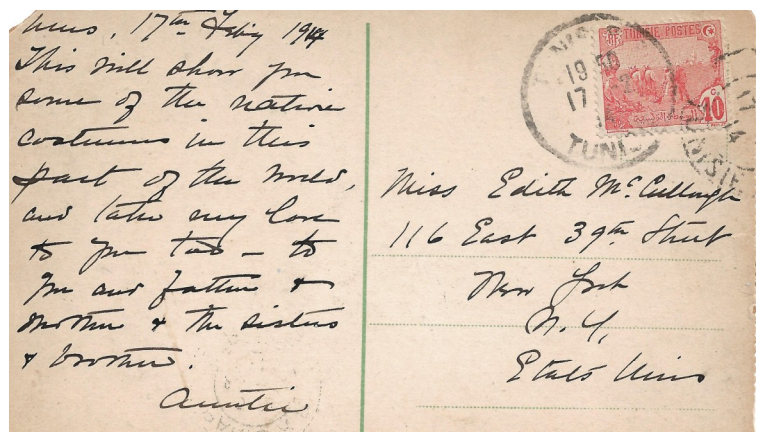 Tunis, 17th Feb'y 1914
This will show you
some of the native
costumes in this
part of the world,
and take my love
to you too – to
you and father &
mother & the sisters
& brother.
Auntie
TUNIS
19 30
17
14
TUNIS
TUNISIE POSTES
10
17
14
TUNISIE
Miss Edith McCullough
116 East 39th Street
New York
N. Y.
Etats Unis